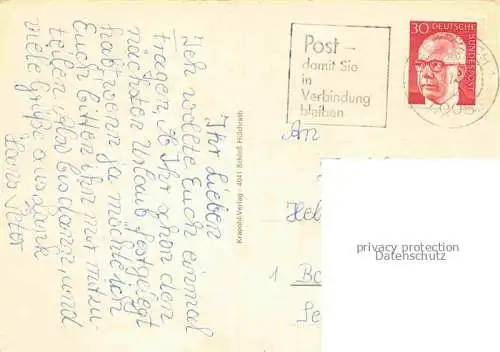 Ihr Lieben
Ich wollte Euch einmal
fragen, ob Ihr schon den
nächsten Urlaub festgelegt
habt, wenn ja möchte ich
Euch bitten ihn mir mitzu-
teilen. Also bis dann, und
viele Grüße aus
Hans Peter
Krapohl-Verlag - 4041 Schloß Hülchrath
Post –
damit Sie
in
Verbindung
bleiben
30 DEUTSCHE
BUNDESPOST
An
privacy protection
Datenschutz
1